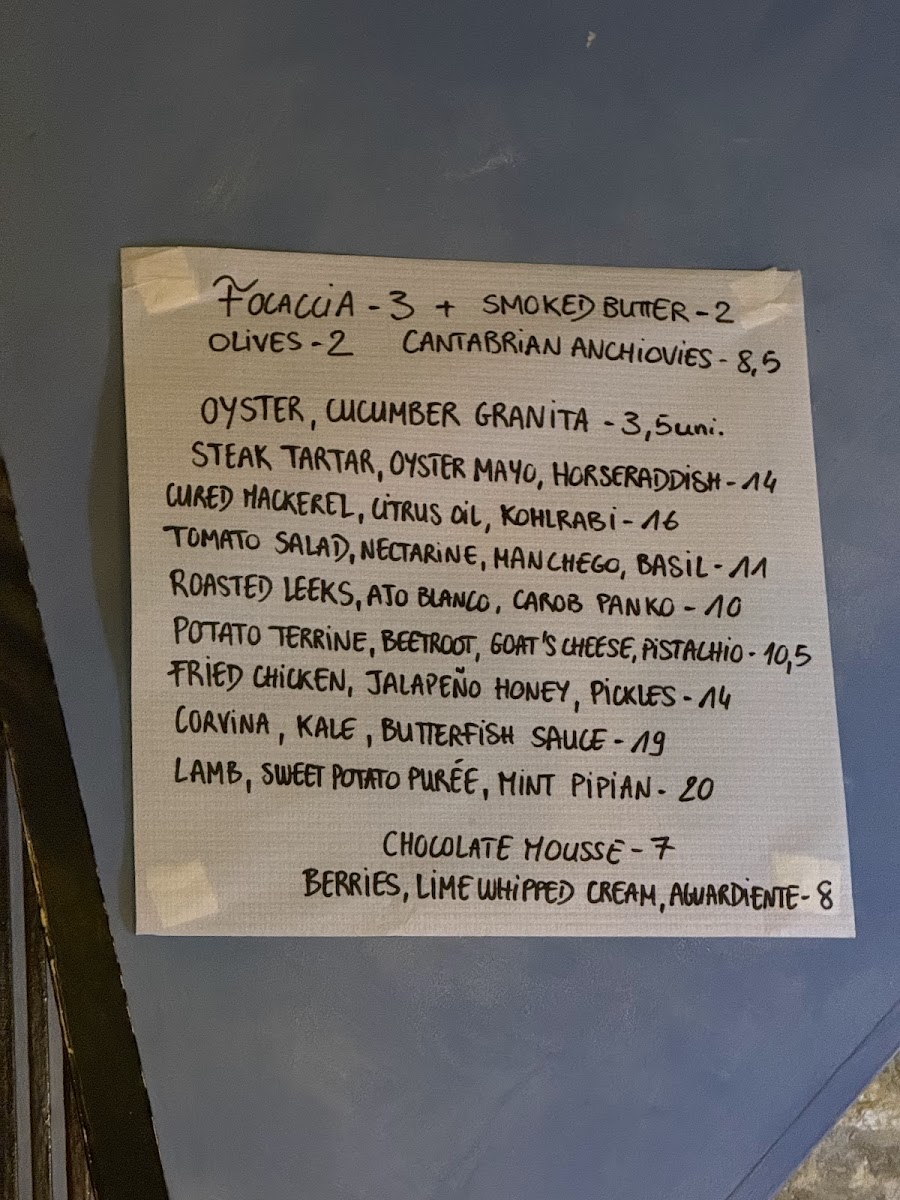 FOCACCIA - 3 + SMOKED BUTTER - 2
OLIVES - 2 CANTABRIAN ANCHIOVIES - 8,5
OYSTER, CUCUMBER GRANITA - 3,5 uni.
STEAK TARTAR, OYSTER MAYO, HORSERADDISH - 14
CURED MACKEREL, CITRUS OIL, KOHLRABI - 16
TOMATO SALAD, NECTARINE, MANCHEGO, BASIL - 11
ROASTED LEEKS, AJO BLANCO, CAROB PANKO - 10
POTATO TERRINE, BEETROOT, GOAT'S CHEESE, PISTACHIO - 10,5
FRIED CHICKEN, JALAPEÑO HONEY, PICKLES - 14
CORVINA, KALE, BUTTERFISH SAUCE - 19
LAMB, SWEET POTATO PURÉE, MINT PIPIAN - 20
CHOCOLATE MOUSSE - 7
BERRIES, LIME WHIPPED CREAM, AGUARDIENTE - 8